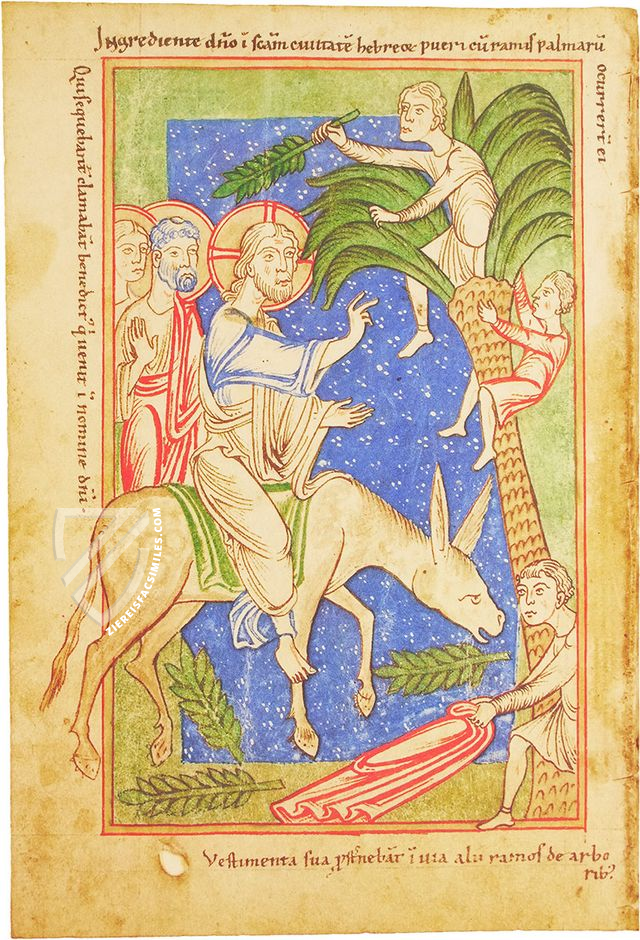 Ingrediente dño ĩ scam ciuitatẽ hebreoꝝ pueri cũ ramis palmarũ
ocurrerũt ei
Qui sequebant̃ clamabãt benedict' q' uenit ĩ nomine dñi.
Vestimenta sua ꝓst̃nebãt ĩ uia alii ramos de arbo
rib'
ZIEREISFACSIMILES.COM